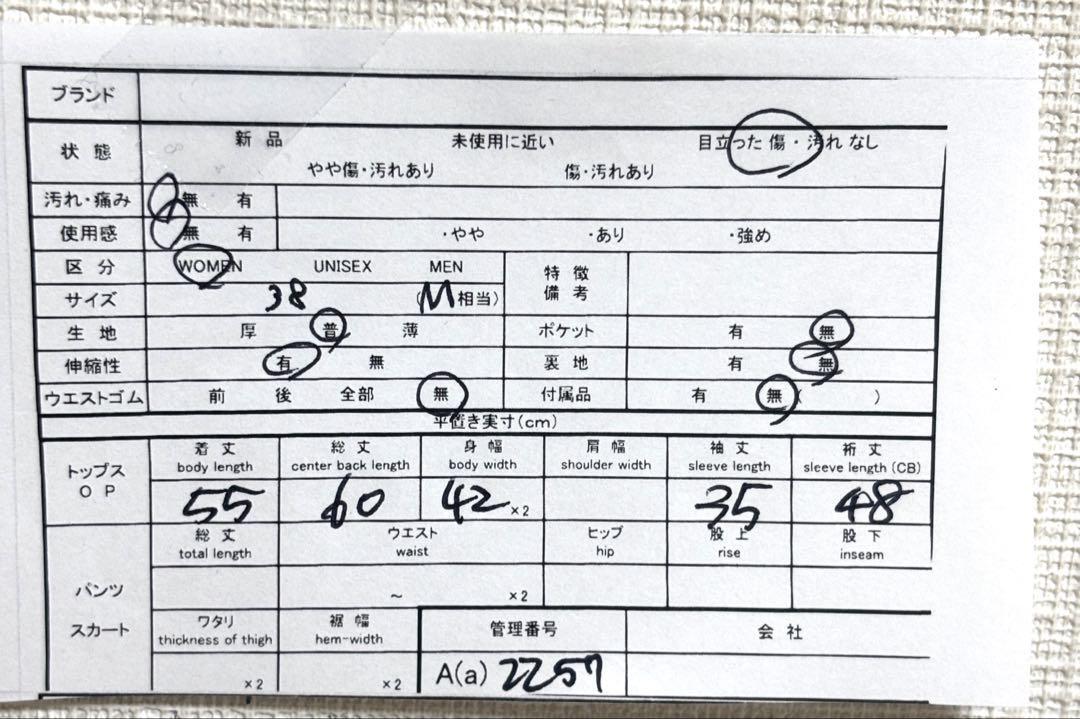 ブランド
状態 新品 未使用に近い 目立った傷・汚れなし
やや傷・汚れあり 傷・汚れあり
汚れ・痛み 無 有
使用感 無 有 ・やや ・あり ・強め
区分 WOMEN UNISEX MEN 特徴 備考
サイズ 38 (M相当)
生地 厚 普 薄 ポケット 有 無
伸縮性 有 無 裏地 有 無
ウエストゴム 前 後 全部 無 付属品 有 無( )
平置き実寸(cm)
トップス OP 着丈 総丈 身幅 肩幅 袖丈 裄丈
body length center back length body width shoulder width sleeve length sleeve length (CB)
55 60 42×2 35 48
総丈 ウエスト ヒップ 股上 股下
total length waist hip rise inseam
パンツ ~ ×2
スカート ワタリ 裾幅 管理番号 会社
thickness of thigh hem-width
×2 ×2 A(a) 2257